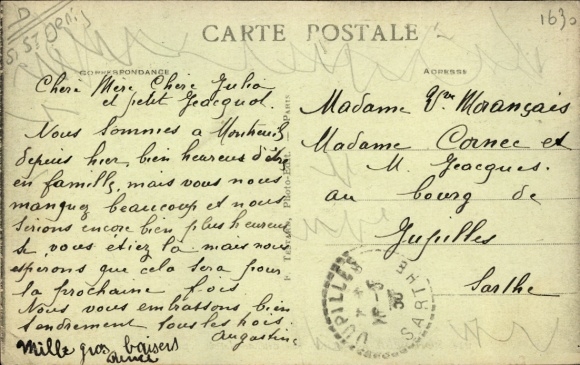 D
S. St Denis
1630
CARTE POSTALE
CORRESPONDANCE
ADRESSE
Chère Mère Chère Julia
et petit Jeacquot.
Nous sommes a Montreuil
depuis hier, bien heureux d'être
en famille, mais vous nous
manquez beaucoup et nous
serions encore bien plus heureux
si vous étiez là mais nous
esperons que cela sera pour
la prochaine fois
Nous vous embrassons bien
tendrement tous les trois
Augustine
Mille gros baisers
Madame Vve Morançais
Madame Cornec et
M. Jeacques.
au bourg de
Jupilles
Sarthe
PARIS
JUPILLES
SARTHE